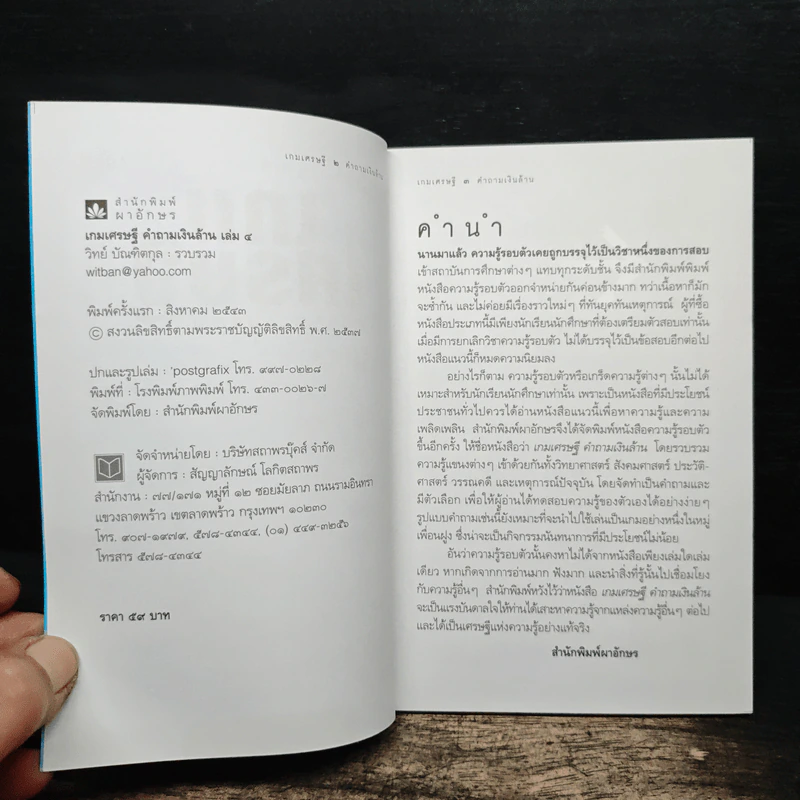 เกมเศรษฐี ๒ คำถามเงินล้าน
สำนักพิมพ์
ผาอักษร
เกมเศรษฐี คำถามเงินล้าน เล่ม ๔
วิทย์ บัณฑิตกุล : รวบรวม
witban@yahoo.com
พิมพ์ครั้งแรก : สิงหาคม ๒๕๔๓
© สงวนลิขสิทธิ์ตามพระราชบัญญัติลิขสิทธิ์ พ.ศ. ๒๕๓๗
ปกและรูปเล่ม : 'postgrafix โทร. ๙๙๗-๐๒๒๘
พิมพ์ที่ : โรงพิมพ์ภาพพิมพ์ โทร. ๔๓๓-๐๐๒๖-๗
จัดพิมพ์โดย : สำนักพิมพ์ผาอักษร
จัดจำหน่ายโดย : บริษัทสถาพรบุ๊คส์ จำกัด
ผู้จัดการ : สัญญาลักษณ์ โลกิตสถาพร
สำนักงาน : ๗๗/๑๗๑ หมู่ที่ ๑๒ ซอยมัยลาภ ถนนรามอินทรา
แขวงลาดพร้าว เขตลาดพร้าว กรุงเทพฯ ๑๐๒๓๐
โทร. ๙๐๗-๑๙๗๙, ๕๗๘-๔๓๔๔, (๐๑) ๔๔๙-๓๒๕๖
โทรสาร ๕๗๘-๔๓๔๔
ราคา ๕๙ บาท
เกมเศรษฐี ๓ คำถามเงินล้าน
คำนำ
นานมาแล้ว ความรู้รอบตัวเคยถูกบรรจุไว้เป็นวิชาหนึ่งของการสอบ
เข้าสถาบันการศึกษาต่างๆ แทบทุกระดับชั้น จึงมีสำนักพิมพ์พิมพ์
หนังสือความรู้รอบตัวออกจำหน่ายกันค่อนข้างมาก ทว่าเนื้อหาก็มัก
จะซ้ำกัน และไม่ค่อยมีเรื่องราวใหม่ๆ ที่ทันยุคทันเหตุการณ์ ผู้ที่ซื้อ
หนังสือประเภทนี้มีเพียงนักเรียนนักศึกษาที่ต้องเตรียมตัวสอบเท่านั้น
เมื่อมีการยกเลิกวิชาความรู้รอบตัว ไม่ได้บรรจุไว้เป็นข้อสอบอีกต่อไป
หนังสือแนวนี้ก็หมดความนิยมลง
อย่างไรก็ตาม ความรู้รอบตัวหรือเกร็ดความรู้ต่างๆ นั้นไม่ได้
เหมาะสำหรับนักเรียนนักศึกษาเท่านั้น เพราะเป็นหนังสือที่มีประโยชน์
ประชาชนทั่วไปควรได้อ่านหนังสือแนวนี้เพื่อหาความรู้และความ
เพลิดเพลิน สำนักพิมพ์ผาอักษรจึงได้จัดพิมพ์หนังสือความรู้รอบตัว
ขึ้นอีกครั้ง ให้ชื่อหนังสือว่า เกมเศรษฐี คำถามเงินล้าน โดยรวบรวม
ความรู้แขนงต่างๆ เข้าด้วยกันทั้งวิทยาศาสตร์ สังคมศาสตร์ ประวัติ-
ศาสตร์ วรรณคดี และเหตุการณ์ปัจจุบัน โดยจัดทำเป็นคำถามและ
มีตัวเลือก เพื่อให้ผู้อ่านได้ทดสอบความรู้ของตัวเองได้อย่างง่ายๆ
รูปแบบคำถามเช่นนี้ยังเหมาะที่จะนำไปใช้เล่นเป็นเกมอย่างหนึ่งในหมู่
เพื่อนฝูง ซึ่งน่าจะเป็นกิจกรรมนันทนาการที่มีประโยชน์ไม่น้อย
อันว่าความรู้รอบตัวนั้นคงหาไม่ได้จากหนังสือเพียงเล่มใดเล่ม
เดียว หากเกิดจากการอ่านมาก ฟังมาก และนำสิ่งที่รู้นั้นไปเชื่อมโยง
กับความรู้อื่นๆ สำนักพิมพ์หวังไว้ว่าหนังสือ เกมเศรษฐี คำถามเงินล้าน
จะเป็นแรงบันดาลใจให้ท่านได้เสาะหาความรู้จากแหล่งความรู้อื่นๆ ต่อไป
และได้เป็นเศรษฐีแห่งความรู้อย่างแท้จริง
สำนักพิมพ์ผาอักษร